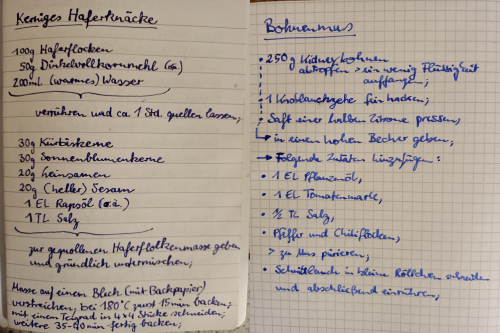 Kerniges Haferknäcke
100g Haferflocken
50g Dinkelvollkornmehl (o.ä.)
200mL (warmes) Wasser
verrühren und ca 1 Std. quellen lassen;
30g Kürbiskerne
30g Sonnenblumenkerne
20g Leinsamen
20g (heller) Sesam
1 EL Rapsöl (o.ä.)
1 TL Salz
zur gequollenen Haferflockenmasse geben
und gründlich untermischen;
Masse auf einem Blech (mit Backpapier)
verstreichen, bei 180°C zuerst 15min backen,
mit einem Teigrad in 4x4 Stücke schneiden;
weitere 35-40min fertig backen;
Bohnenmus
• 250g Kidneybohnen
abtropfen > ein wenig Flüssigkeit
auffangen;
• 1 Knoblauchzehe fein hacken;
• Saft einer halben Zitrone pressen;
→ in einen hohen Becher geben;
→ Folgende Zutaten hinzufügen:
• 1 EL Pflanzenöl,
• 1 EL Tomatenmark,
• ½ TL Salz,
• Pfeffer und Chiliflocken,
> zu Mus pürieren;
• Schnittlauch in kleine Röllchen schneiden
und abschließend einrühren;